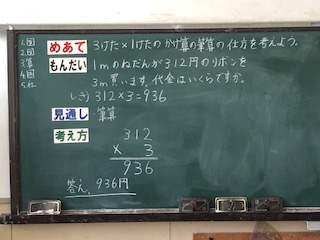 1.国
2.図
3.算
4.国
5.社
めあて 3けた×1けたのかけ算の筆算の仕方を考えよう。
もんだい 1mのねだんが312円のリボンを
3m買います。代金はいくらですか。
しき) 312×3=936
見通し・筆算
考え方 312
× 3
936
答え、936円